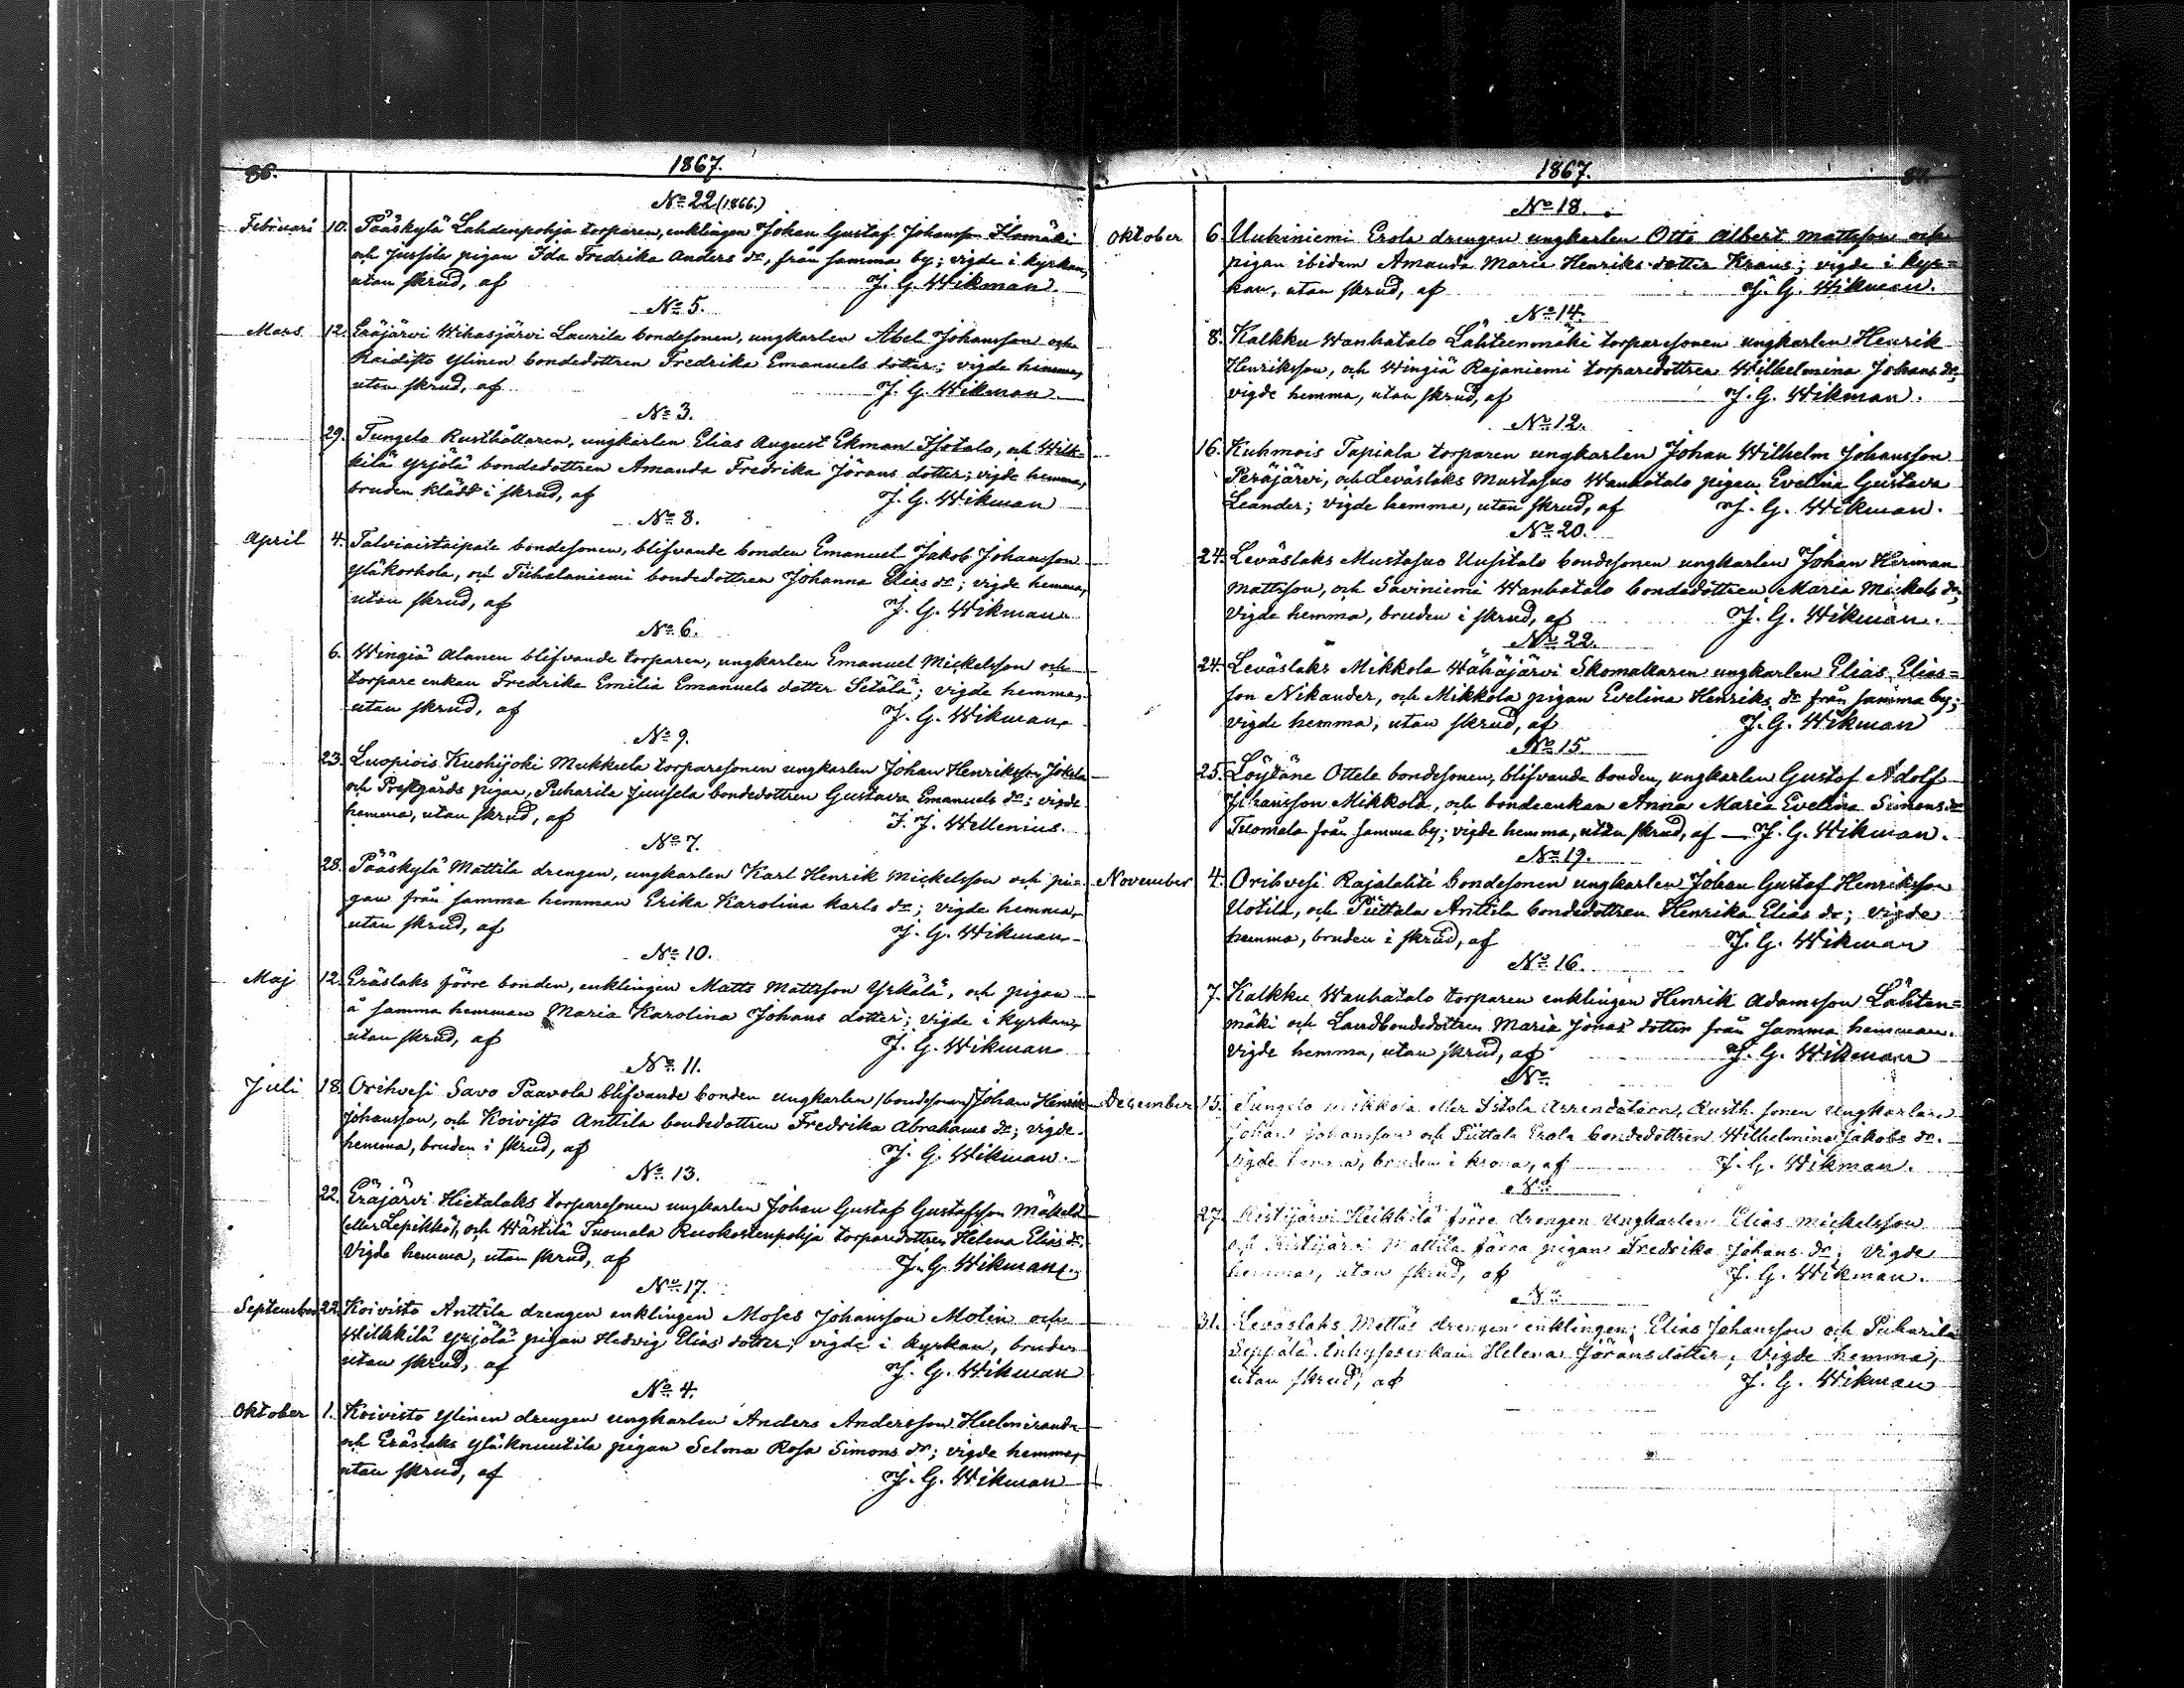 86.
1867.
No 22 (1866.)
Februari 10. Pääskylä Lahdenpohja torparen, enklingen Johan Gustaf Johansson Ilomäki
och Jussila pigan Ida Fredrika Anders dr, från samma by; vigde i kyrkan,
utan skrud, af J. G. Wikman.
No 5.
Mars 12. Eräjärvi Wihasjärvi Laurila bondesonen, ungkarlen Abel Johansson och
Raidisto Ylinen bondedottren Fredrika Emanuels dotter; vigde hemma,
utan skrud, af J. G. Wikman.
No 3.
29. Tungelo Rusthållaren, ungkarlen Elias August Ekman Isotalo, och Wilk-
kilä Yrjölä bondedottren Amanda Fredrika Jörans dotter; vigde hemma,
bruden klädd i skrud, af J. G. Wikman
No 8.
April 4. Talviaistaipale bondesonen, blifvande bonden Emanuel Jakob Johansson
Yläkorhola, och Tiihalaniemi bondedottren Johanna Elias dr; vigde hemma,
utan skrud, af J. G. Wikman
No 6.
6. Wingiä Alanen blifvande torparen, ungkarlen Emanuel Mickelsson och
torpare enkan Fredrika Emilia Emanuels dotter Setälä; vigde hemma,
utan skrud, af J. G. Wikman
No 9.
23. Luopiois Kuohijoki Mukkula torparesonen ungkarlen Johan Henriksson Jokela
och Prestgårds pigan, Puharila Juusela bondedottren Gustava Emanuels dr; vigde
hemma, utan skrud, af F. J. Wellenius.
No 7.
28. Pääskylä Mattila drengen, ungkarlen Karl Henrik Mickelsson och pi-
gan från samma hemman Erika Karolina Karls dr; vigde hemma,
utan skrud, af J. G. Wikman
No 10.
Maj 12. Eräslaks förre bonden, enklingen Matts Mattsson Yrkälä, och pigan
å samma hemman Maria Karolina Johans dotter; vigde i kyrkan,
utan skrud, af J. G. Wikman
No 11.
Juli 18. Orihvesi Savo Paavola blifvande bonden ungkarlen (bondesonen) Johan Henrik
Johansson, och Koivisto Anttila bondedottren Fredrika Abrahams dr; vigde
hemma, bruden i skrud, af J. G. Wikman.
No 13.
22. Eräjärvi Hietalaks torparesonen ungkarlen Johan Gustaf Gustafsson Mäkelä
(eller Lepikkö), och Wästilä Tuomala Ruokostenpohja torparedottren Helena Elias dr;
Vigde hemma, utan skrud, af J. G. Wikman.
No 17.
September 22. Koivisto Anttila drengen enklingen Moses Johansson Molin och
Wilkkilä Yrjölä pigan Hedvig Elias dotter; vigde i kyrkan, bruden
utan skrud, af J. G. Wikman
No 4.
Oktober 1. Koivisto Ylinen drengen ungkarlen Anders Andersson
och Eräslaks Yläknuutila pigan Selma Rosa Simons dr; vigde hemma,
utan skrud, af J. G. Wikman
1867.
87.
No 18.
Oktober 6. Uukiniemi Erola drengen ungkarlen Otto Albert Mattsson och
pigan ibidem Amanda Maria Henriks dotter Kraus; vigde i kyr=
kan, utan skrud, af J. G. Wikman.
No 14.
8. Kalkku Wanhatalo Lähteenmäki torparesonen ungkarlen Henrik
Henriksson, och Wingiä Rajaniemi torparedottren Wilhelmina Johans dr;
vigde hemma, utan skrud, af J. G. Wikman.
No 12.
16. Kuhmois Tapiala torparen ungkarlen Johan Wilhelm Johansson
Peräjärvi, och Leväslaks Mustasuo Wanhatalo pigan Evelina Gustava
Leander; vigde hemma, utan skrud, af J. G. Wikman.
No 20.
24. Leväslaks Mustasuo Uusitalo bondesonen ungkarlen Johan Herman
Mattsson, och Saviniemi Wanhatalo bondedottren Maria Mickels dr;
vigde hemma, bruden i skrud, af J. G. Wikman.
No 22.
24. Leväslaks Mikkola Wähäjärvi Skomakaren ungkarlen Elias Elias=
son Nikander, och Mikkola pigan Evelina Henriks dr från samma by;
vigde hemma, utan skrud, af J. G. Wikman
No 15.
25. Löytäne Ottele bondesonen, blifvande bonden, ungkarlen Gustaf Adolf
Johansson Mikkola, och bondeenkan Anna Maria Evelina Simons dr
Tuomala från samma by; vigde hemma, utan skrud, af J. G. Wikman.
No 19.
November 4. Orihvesi Rajalahti bondesonen ungkarlen Johan Gustaf Henriksson
Uotila, och Piittala Anttila bondedottren Henrika Elias dr; vigde
hemma, bruden i skrud, af J. G. Wikman
No 16.
7. Kalkku Wanhatalo torparen enklingen Henrik Adamsson Lähten=
mäki och Landbondedottren Maria Jonas dotter från samma hemman.
vigde hemma, utan skrud, af J. G. Wikman
No
December 15. Tungelo Mikkola eller Istola Arrendatorn, Rusth. sonen Ungkarlen
Johan Johansson och Piittala Erola bondedottren Wilhelmina Jakobs dr.
vigde hemma, bruden i krona, af J. G. Wikman.
No
27. Ristijärvi Heikkilä förre drengen Ungkarlen Elias Mickelsson
och Ristijärvi Mattila förra pigan Fredrika Johans dr; vigde
hemma, utan skrud, af J. G. Wikman.
No
31. Leväslaks Mattas drengen enklingen Elias Johansson och Puharila
Seppälä Inhyseenkan Helena Jöransdotter; Vigde hemma,
utan skrud, af J. G. Wikman